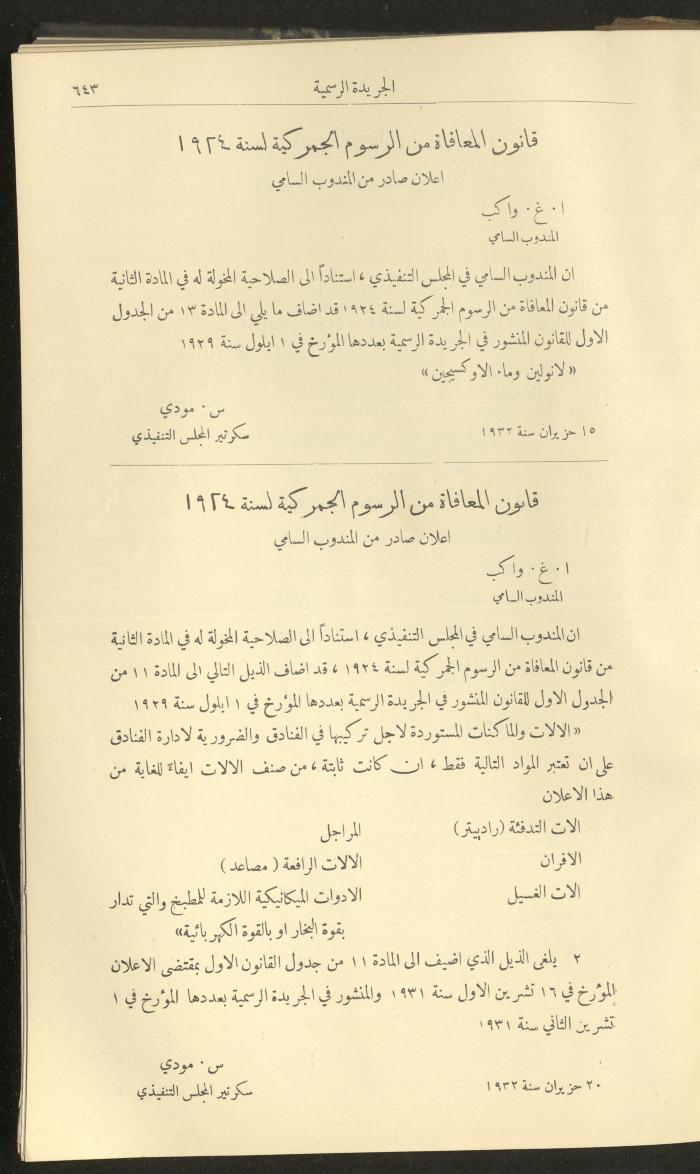 الجريدة الرسمية ٦٤٣
قانون المعافاة من الرسوم الجمركية لسنة ١٩٢٤
اعلان صادر من المندوب السامي
ا٠ غ٠ واكب
المندوب السامي
ان المندوب السامي في المجلس التنفيذي ، استناداً الى الصلاحية المخولة له في المادة الثانية
من قانون المعافاة من الرسوم الجمركية لسنة ١٩٢٤ قد اضاف ما يلي الى المادة ١٣ من الجدول
الاول للقانون المنشور في الجريدة الرسمية بعددها المؤرخ في ١ ايلول سنة ١٩٢٩
«لانولين وماء الاوكسيجين»
س٠ مودي
١٥ حزيران سنة ١٩٣٢ سكرتير المجلس التنفيذي
قانون المعافاة من الرسوم الجمركية لسنة ١٩٢٤
اعلان صادر من المندوب السامي
ا٠ غ٠ واكب
المندوب السامي
ان المندوب السامي في المجلس التنفيذي ، استناداً الى الصلاحية المخولة له في المادة الثانية
من قانون المعافاة من الرسوم الجمركية لسنة ١٩٢٤ ، قد اضاف الذيل التالي الى المادة ١١ من
الجدول الاول للقانون المنشور في الجريدة الرسمية بعددها المؤرخ في ١ ايلول سنة ١٩٢٩
«الالات والماكنات المستوردة لاجل تركيبها في الفنادق والضرورية لادارة الفنادق
على ان تعتبر المواد التالية فقط ، ان كانت ثابتة ، من صنف الالات ايفاءً للغاية من
هذا الاعلان
الات التدفئة (راديپتر) المراجل
الافران الالات الرافعة ( مصاعد )
الات الغسيل الادوات الميكانيكية اللازمة للمطبخ والتي تدار
بقوة البخار او بالقوة الكهربائية»
٢ يلغى الذيل الذي اضيف الى المادة ١١ من جدول القانون الاول بمقتضى الاعلان
المؤرخ في ١٦ تشرين الاول سنة ١٩٣١ والمنشور في الجريدة الرسمية بعددها المؤرخ في ١
تشرين الثاني سنة ١٩٣١
س٠ مودي
٢٠ حزيران سنة ١٩٣٢ سكرتير المجلس التنفيذي